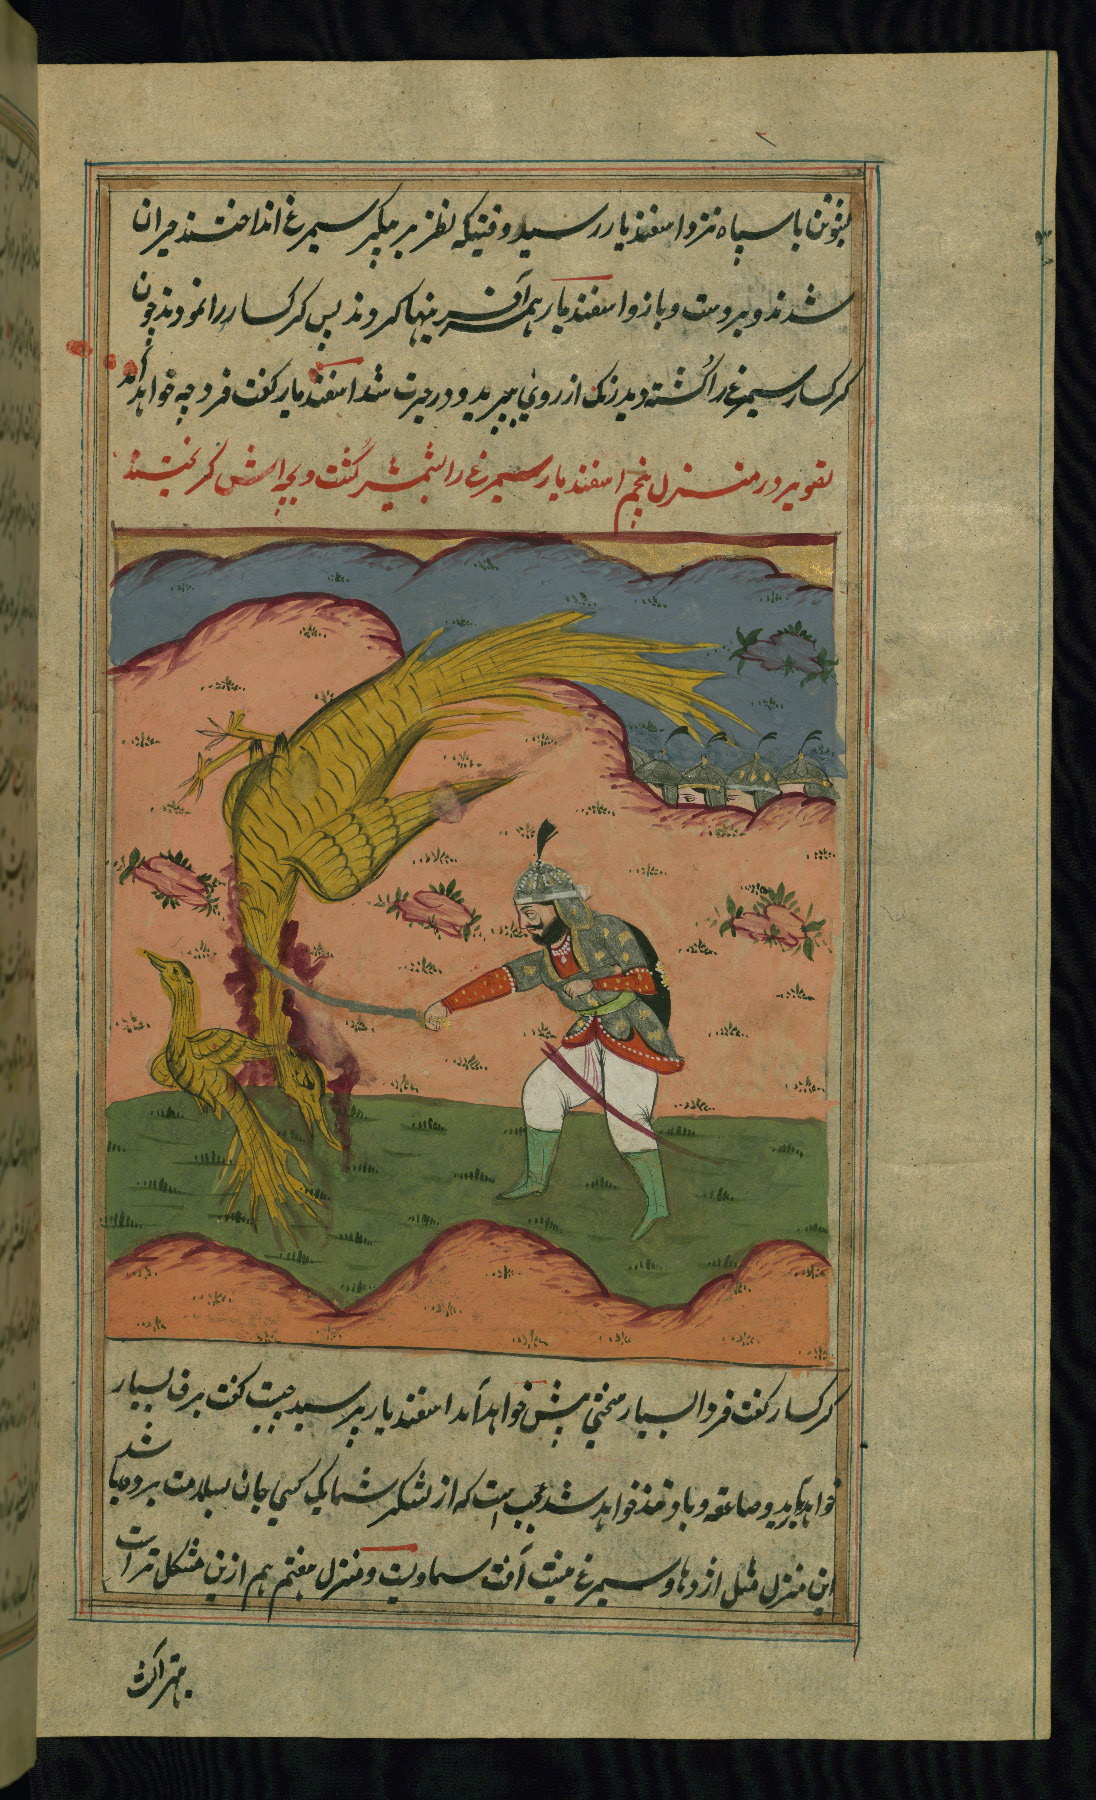 پشوتن با سپاه نزد اسفندیار رسید وقتیکه نظر بر پیکر سیمرغ انداختند حیران
شدند و بر دست و بازو اسفندیار همه آفرینها کردند پس کرکسار را نمودند چون
کرکسار سیمرغ را کشته دید رنک از روی پرید و در حیرت شد اسفندیار کفت فردا چه خواهد آمد
تصویر در منزل پنجم اسفندیار سیمرغ را بشمشیر کشت و بچه اش کریختند
کرکسار کفت فردا بسیار سختی پیش خواهد آمد اسفندیار پرسید چیست کفت برف بسیار
خواهد بارید و صاعقه و باد تند خواهد شد عجب است که از لشکر شما یک کسی جان بسلامت برده باشد
این منزل مثل اژدها و سیمرغ نیست آفت سماویست و منزل هفتم هم ازین مشکل تر است